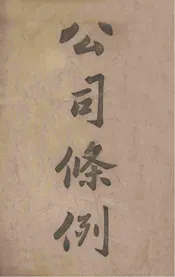 公司條例